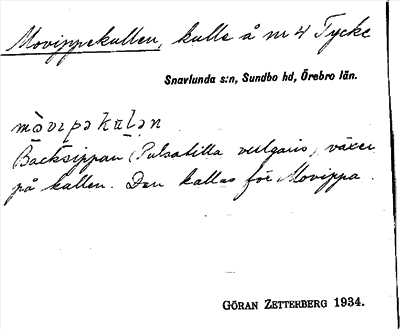 Movippekullen, kulle å nr 4 Tycke
Snavlunda s:n, Sundbo hd, Örebro län.
mòvɩpəkulən
Backsippan (Pulsatilla vulgaris) växer
på kullen. Den kallas för Movippa.
GÖRAN ZETTERBERG 1934.